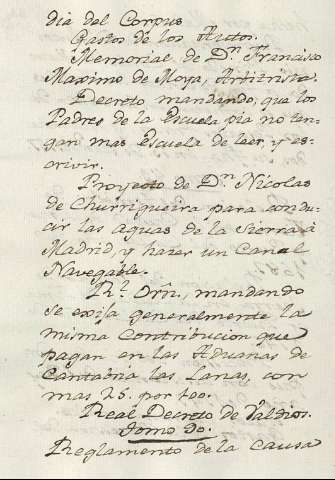 dia del Corpus
Gastos de los Autos.
Memorial de Dn. Francisco
Maximo de Moya, Arbitriste.
Decreto mandando, que los
Padres de la Escuela pia no ten-
gan mas Escuela de leer, y es-
crivir.
Proyecto de Dn. Nicolas
de Churriqueira para condu-
cir las aguas de la Sierra à
Madrid, y hazer un Canal
Navegable.
Rl. Orn., mandando
se exija generalmente la
misma Contribucion que
pagan en las Aduanas de
Cantabria las Lanas, con
mas 25. por 100.
Real Decreto de Valdios.
Tomo 30.
Reglamento de la Causa